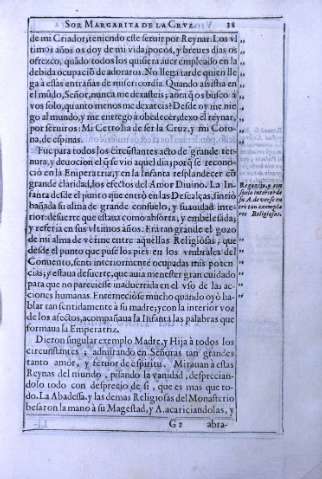 SOR MARGARITA DE LA CRVZ. 28
de mi Criador, teniendo este seruir por Reynar. Los vl
timos años os doy de mi vida, pocos, y breues dias os
ofrezco, quãdo todos los quisiera auer empleado en la
debida ocupaciõ de adoraros. No llega tarde quien lle
ga à estas entrañas de misericordia. Quando assistia en
el mũdo, Señor, nunca me dexasteis; aora q̃ os busco à
vos solo, quanto menos me dexareis? Desde oy me nie
go al mundo, y me entrego à obedecer, dexo el reynar,
por seruiros: Mi Cetro ha de ser la Cruz, y mi Coro-
na, de espinas.
Fue para todos los circũstantes acto de grande ter-
nura, y deuocion el q̃ se vio aquel dia; porq̃ se recono-
ciò en la Emperatriz, y en la Infanta resplandecer cõ
grande claridad, los efectos del Amor Diuino. La In-
fanta desde el punto que entrò en las Descalças, sintiò
bañada su alma de grande consuelo, y suauidad inte-
rior: de suerte que estaua como absorta, y embelesada;
y referia en sus vltimos años. Era tan grande el gozo
de mi alma de verme entre aquellas Religiosas, que
desde el punto que puse los pies en los vmbrales del
Conuento, senti interiormente ocupadas mis poten-
cias; y estaua de suerte, que auia menester gran cuidado
para que no pareciesse inaduertida en el vso de las ac-
ciones humanas. Enterneciòse mucho quando oyò ha-
blar tan sentidamente à su madre; y con la interior voz
de los afectos, acompañaua la Infanta las palabras que
formaua la Emperatriz.
Dieron singular exemplo Madre, y Hija à todos los
circunstantes, admirando en Señoras tan grandes
tanto amor, y feruor de espiritu. Mirauan à estas
Reynas del mundo, pisando la vanidad, desprecian-
dolo todo con desprecio de sì, que es mas que to-
do. La Abadessa, y las demas Religiosas del Monasterio
besaron la mano à su Magestad, y A. acariciandolas, y
G 2 abra-
Religiosas.